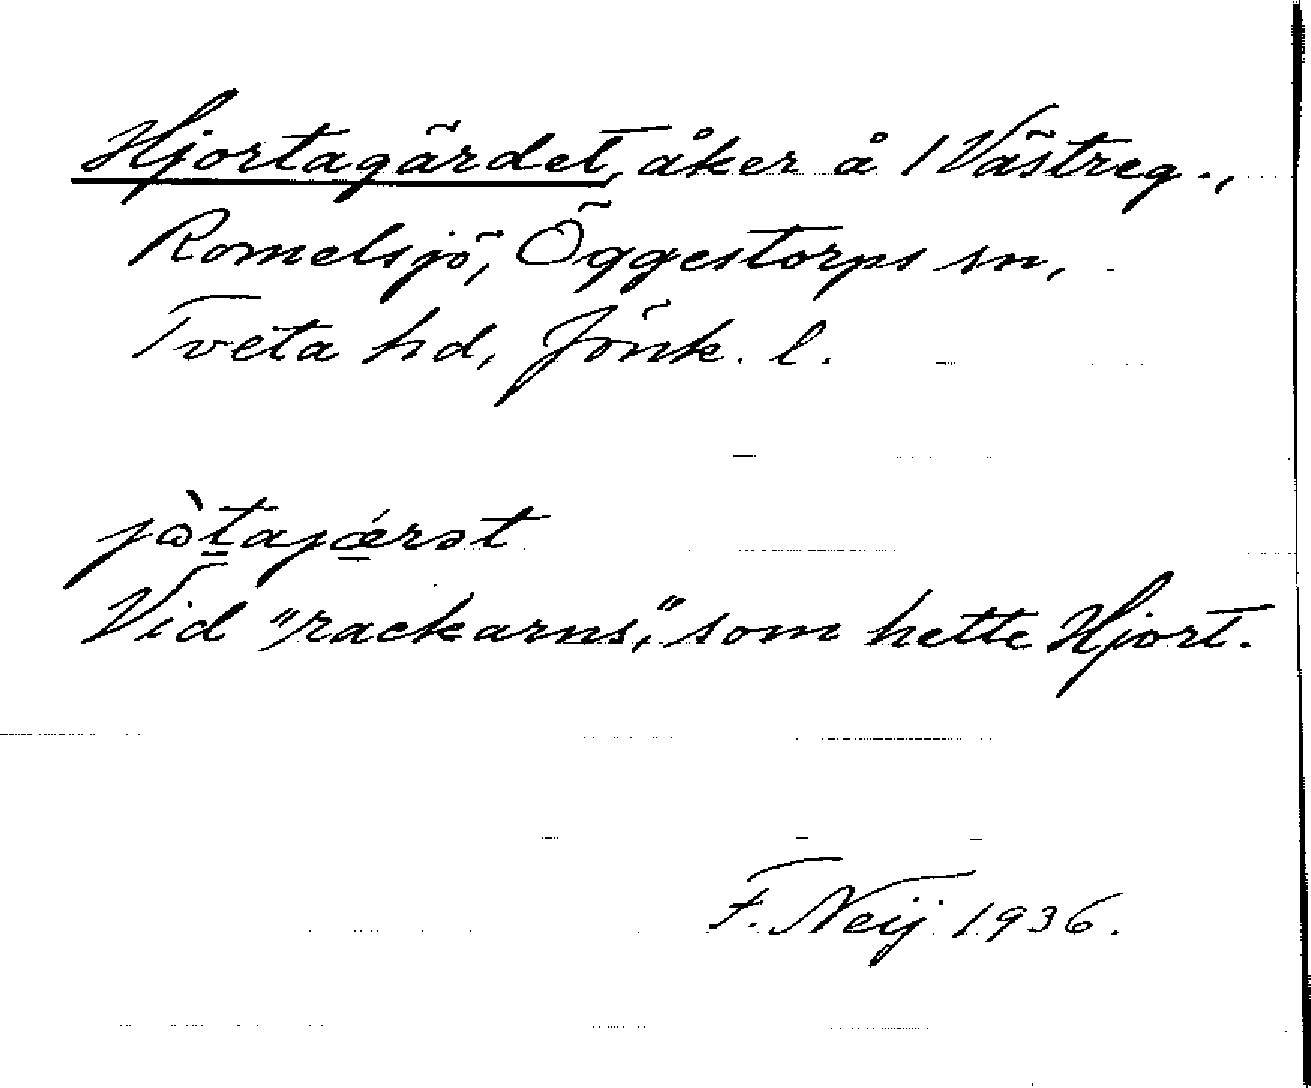 Hjortagärdet, åker å 1 Västreg.,
Romelsjö, Öggestorps sn,
Tveta hd, Jönk. l.
jò̱tajǽrət
Vid "rackarns," som hette Hjort.
F. Neij 1936.